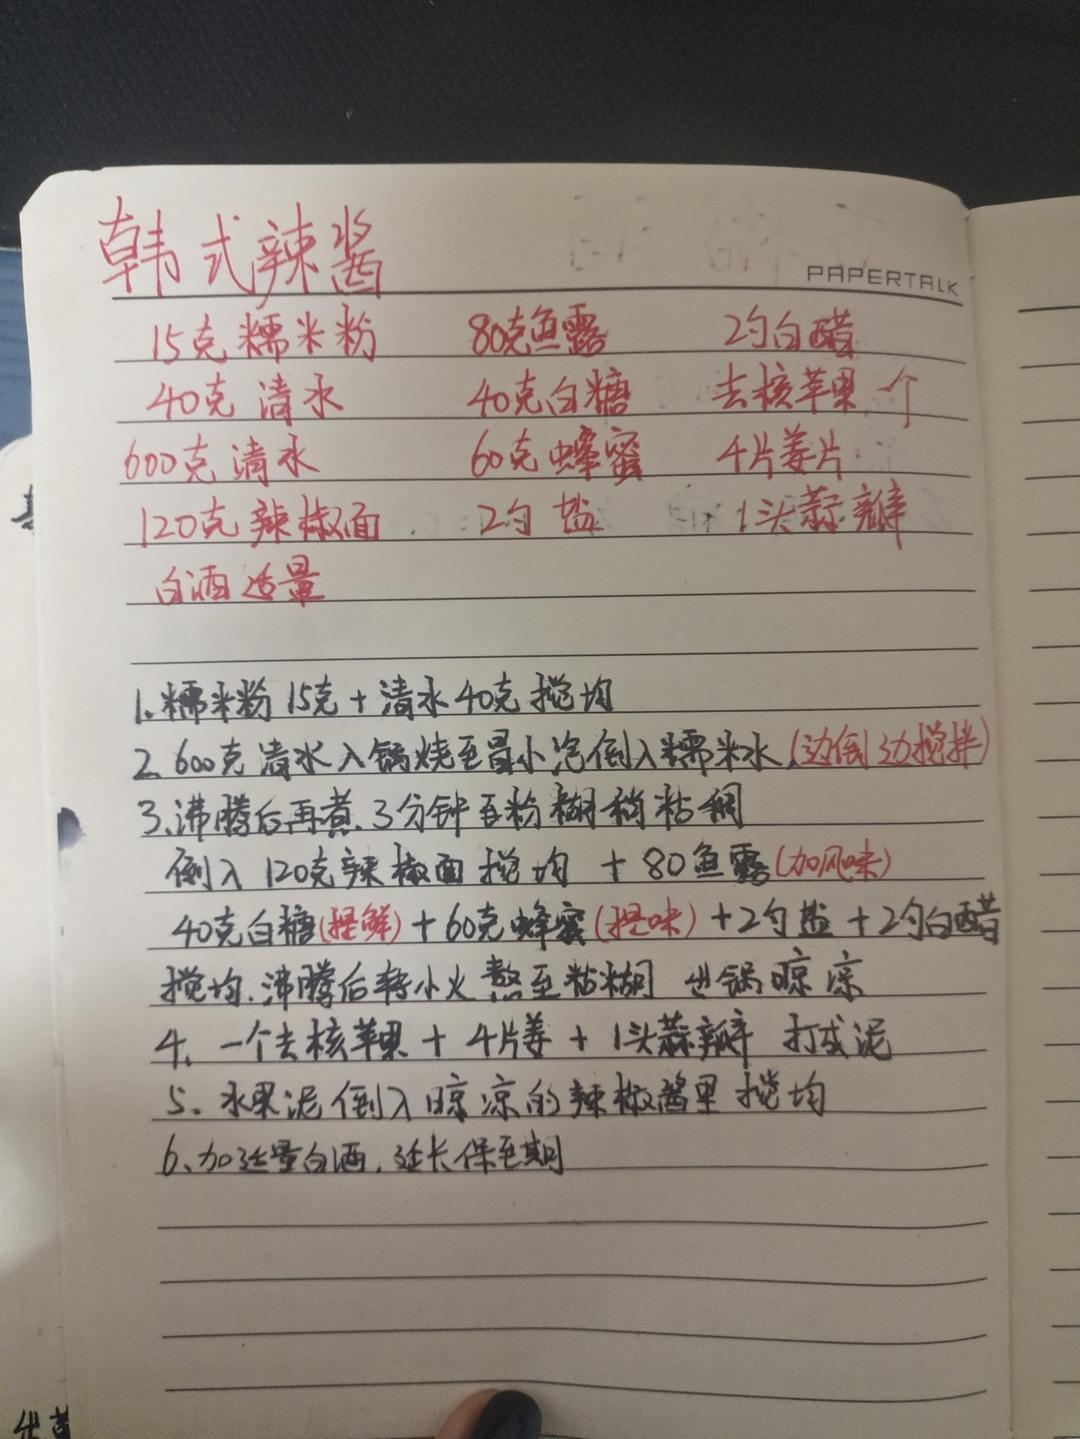 韩式辣酱
PAPERTALK
15克糯米粉 80克鱼露 2勺白醋
40克清水 40克白糖 去核苹果一个
600克清水 60克蜂蜜 4片姜片
120克辣椒面 2勺盐 1头蒜瓣
白酒适量
1.糯米粉15克+清水40克搅均
2.600克清水入锅烧至冒小泡倒入糯米水(边倒边搅拌)
3.沸腾后再煮.3分钟至粉糊稍粘稠
倒入120克辣椒面搅均+80鱼露(加风味)
40克白糖(提鲜)+60克蜂蜜(提味)+2勺盐+2勺白醋
搅均.沸腾后转小火熬至粘糊 出锅晾凉
4.一个去核苹果+4片姜+1头蒜瓣 打成泥
5.水果泥倒入晾凉的辣椒酱里搅均
6.加适量白酒.延长保质期